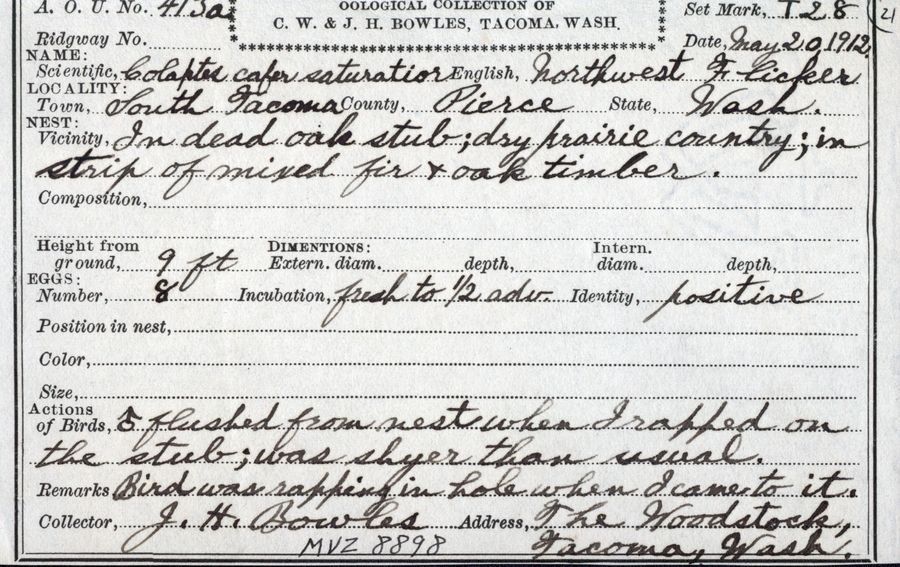 A. O. U. No. 413a OOLOGICAL COLLECTION OF Set Mark, T28 21
C. W. & J. H. BOWLES, TACOMA, WASH.
Ridgway No. Date, May 20, 1912.
NAME:
Scientific, Colaptes cafer saturatior English, Northwest Flicker
LOCALITY:
Town, South Tacoma County, Pierce State, Wash.
NEST:
Vicinity, In dead oak stub; dry prairie country; in
strip of mixed fir & oak timber.
Composition,
Height from DIMENTIONS: Intern.
ground, 9 ft Extern. diam. depth, diam. depth,
EGGS:
Number, 8 Incubation, fresh to 1/2 adv. Identity, positive
Position in nest,
Color,
Size,
Actions
of Birds, flushed from nest when I rapped on
the stub; was shyer than usual.
Remarks Bird was rapping in hole when I came to it.
Collector, J. H. Bowles Address, The Woodstock,
MVZ 8898 Tacoma, Wash.